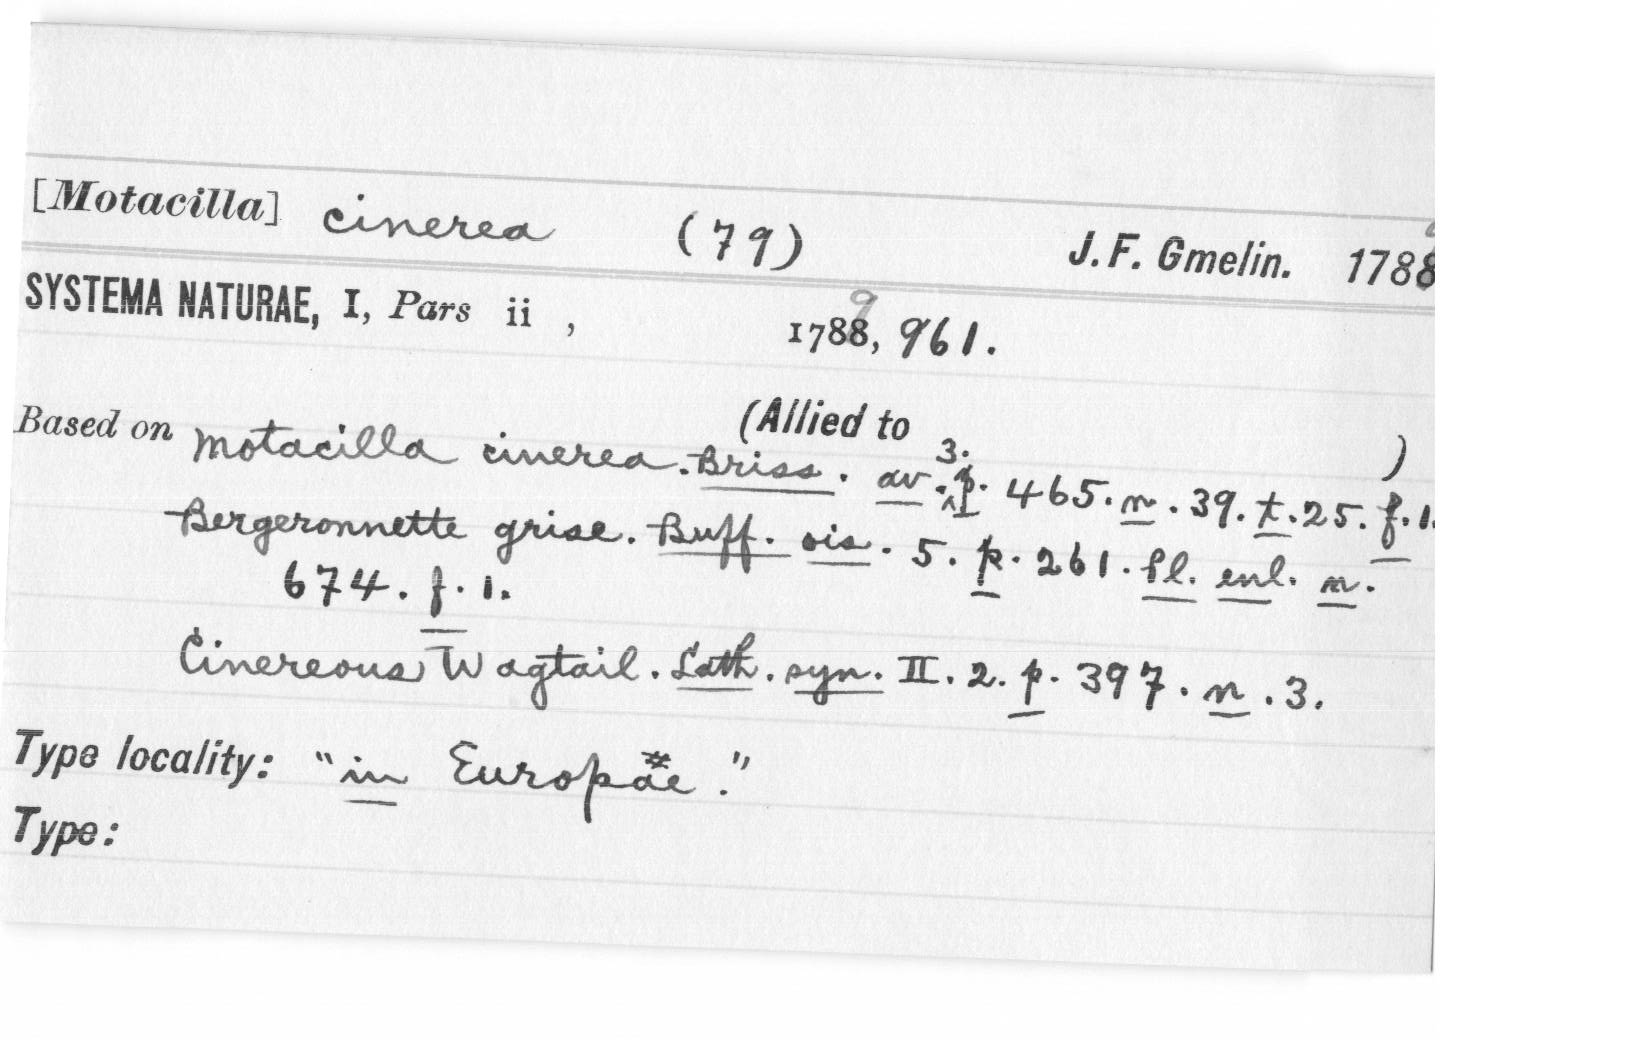 [Motacilla] cinerea (79) J. F. Gmelin. 1788
SYSTEMA NATURAE, I, Pars ii , 1789, 961.
(Allied to )
Based on Motacilla cinerea. Briss. av. 3. p. 465. n. 39. t. 25. f. 1.
Bergeronnette grise. Buff. ois. 5. p. 261. Pl. enl. n.
674. f. 1.
Cinereous Wagtail. Lath. syn. II. 2. p. 397. n. 3.
Type locality: "in Europae."
Type: